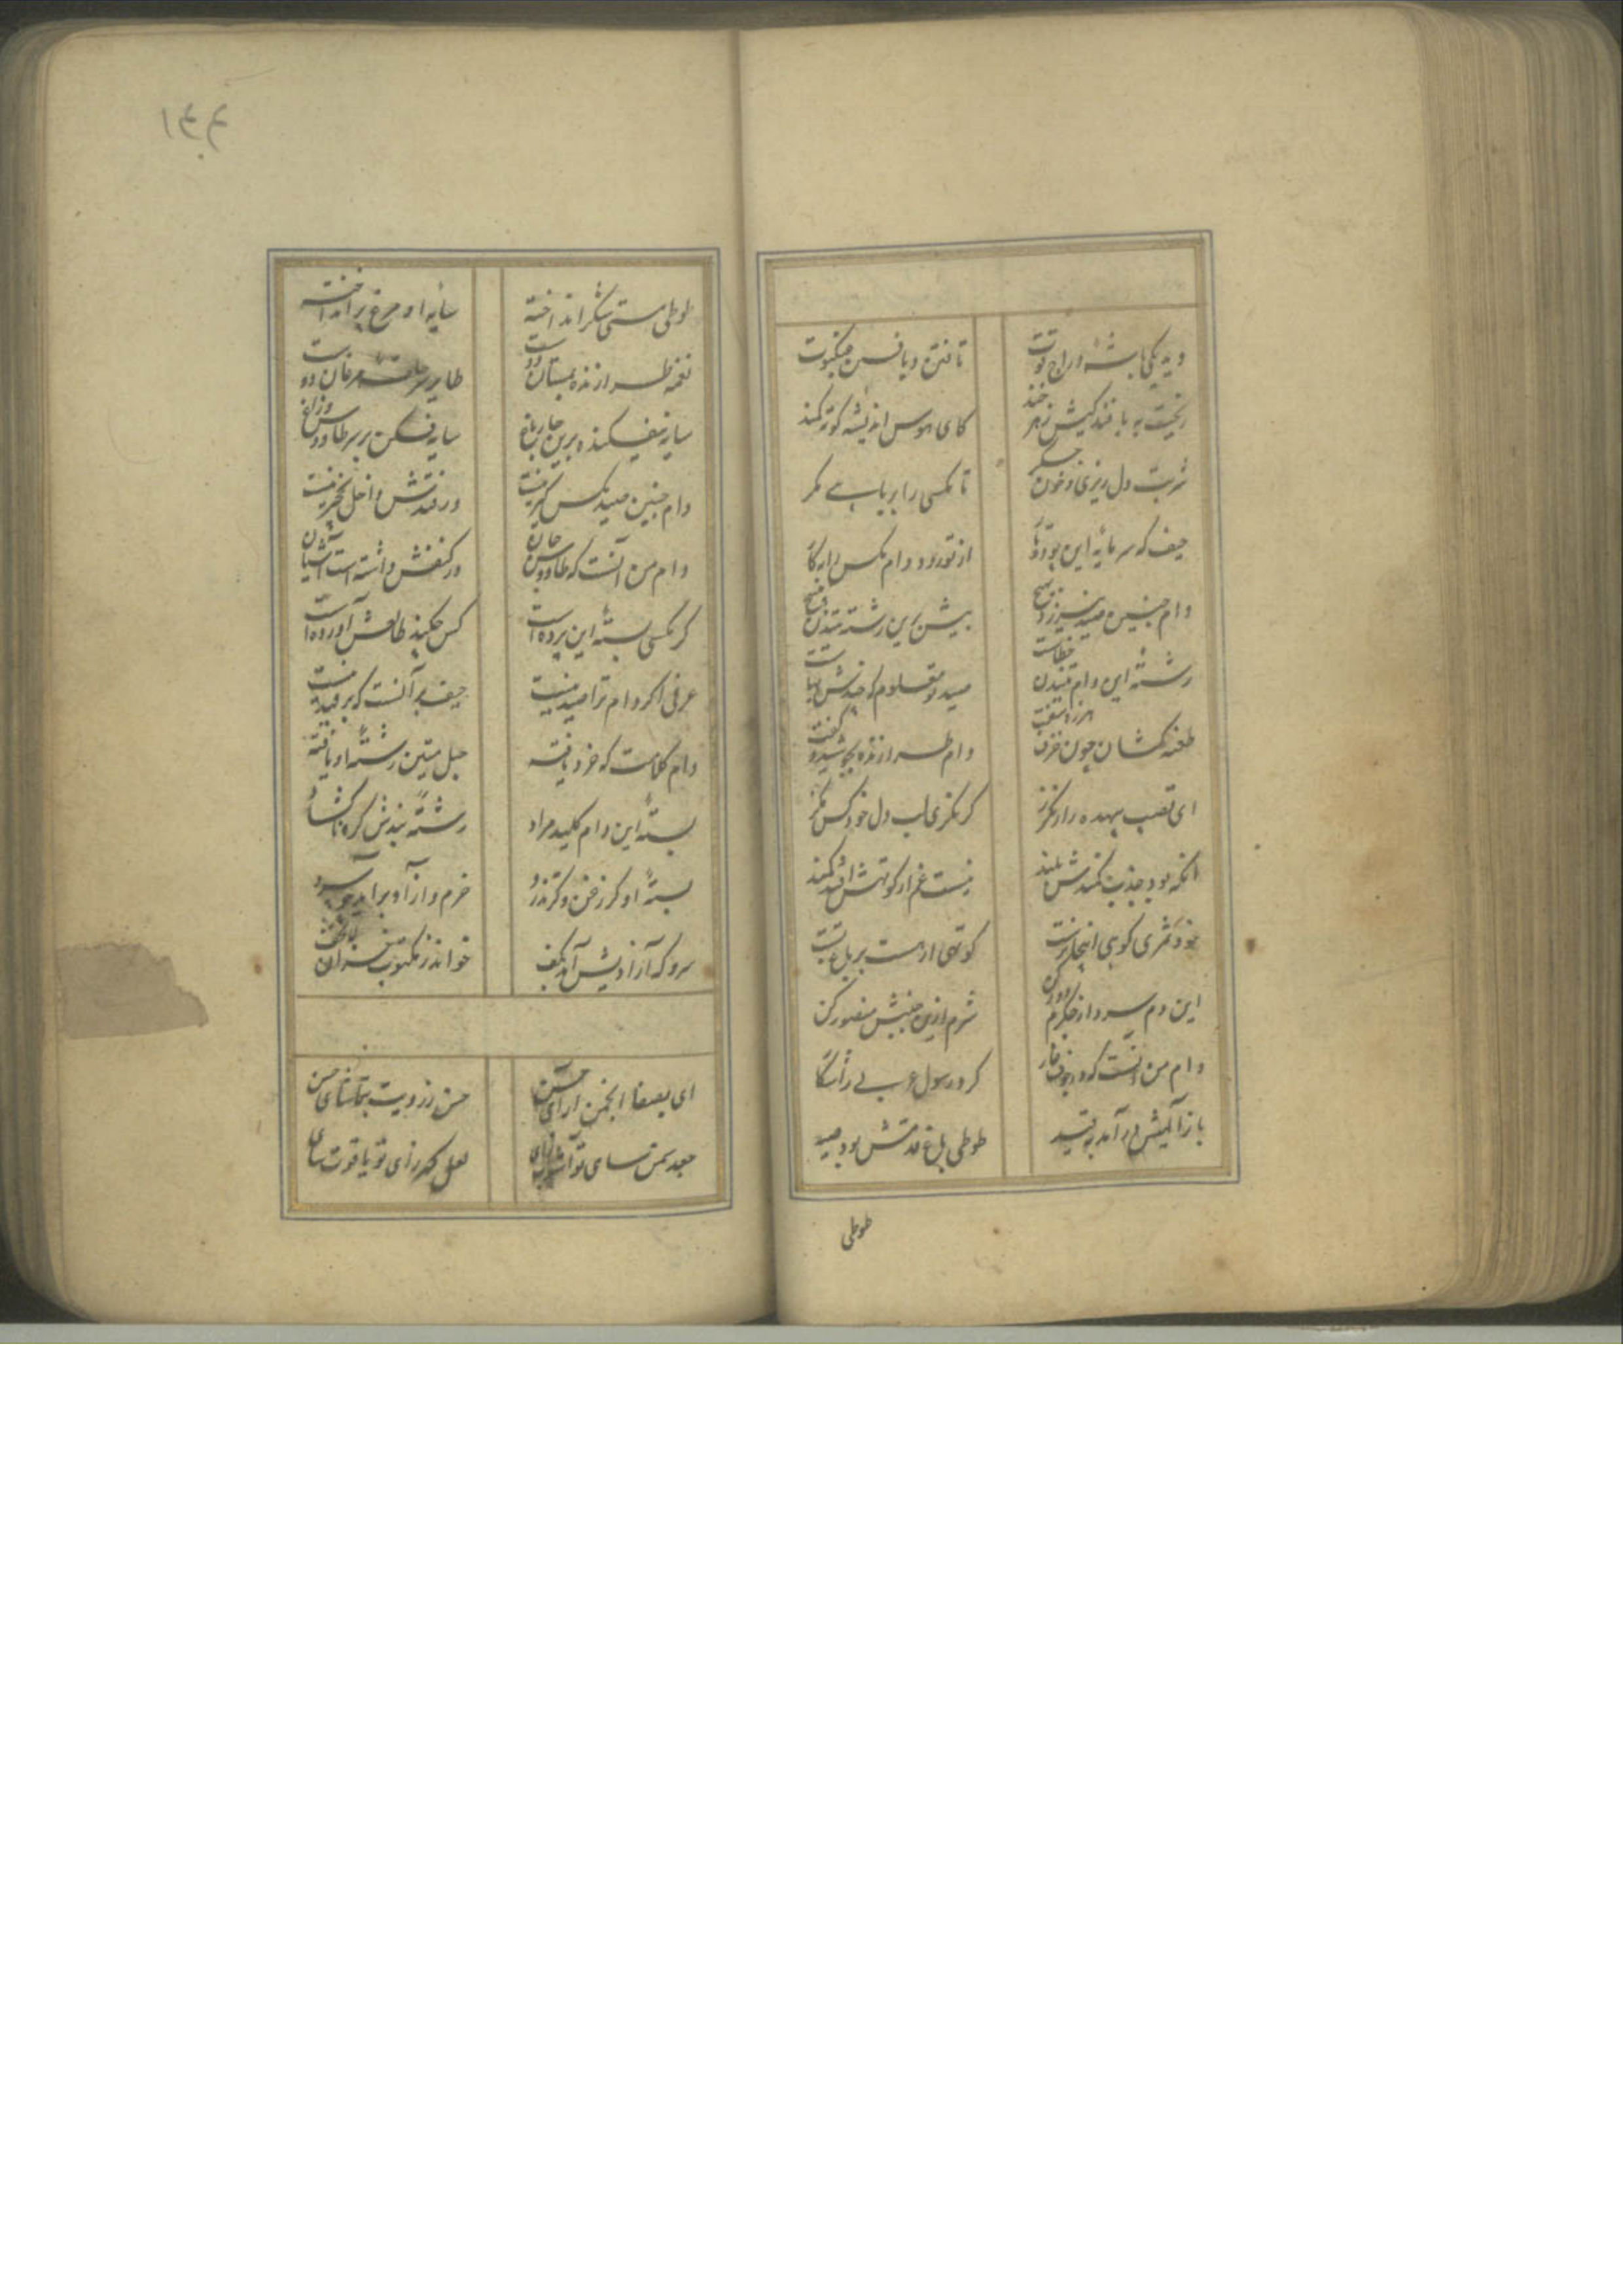 دید یکی باشهٔ دراج قوت
تافتن و بافتن عنکبوت
ریخت به بافندگیش زهر خند
کای هوس اندیشهٔ کوته کمند
شربت دل ریزی و خون جگر
تا مگسی را بربایی مگر
حیف که سرمایهٔ این بود
از تو رود دام مگس را بکار
دام چنین صید نیرزد
بیش برین رشته متن
رشتهٔ این دام تنیدن خطاست
صید تو معلوم که چندش بهاست
طعنه کشان چون
دام طرازنده بجوشید و گفت
ای قصب بیهده را
گر نگزی لب دل خود کس مگز
آنکه بود جذب کمندش بلند
نیست غم ار کوتهش افتد کمند
کوتهی ار هست بر باع تست
این دم سرد از جگرم دور کن
شرم ازین جنبش معذور کن
دام من آنست که در جوف غار
کرد رسول عربی را شکار
باز آلیش در آمد بقید
طوطی بلاغ قدسش بود صید
طوطی
۱۴۴
طوطی مستی شکر انداخته
سایهٔ او مرغ پر انداخته
نغمه طرازندهٔ بستان دوست
طایر سر حلقهٔ مرغان دوست
سایه نیفکنده برین چار باغ
سایه فکن بر سر طاوس و زاغ
دام چنین صید مگس گیر نیست
ور فتدش داخل نخچیر نیست
دام من آنست که طاوس جان
در کنفش داشته است آشیان
گر مگسی بستهٔ این پرده است
کس چکند طالعش آورده است
عرفی اگر دام ترا صید نیست
حیف بر آنست که در قید نیست
دام کلامت که خرد یافته
حبل متین رشتهٔ او بافته
بستهٔ این دام کلید مراد
رشتهٔ بندش گره ناگشاد
بستهٔ او گر زغن و گر تذرو
خرم و آزاد برآید چو سرو
سرو که آزادیش آمد بکف
خواند ز مکتوب سران
ای بصفا انجمن آرای حسن
حسن ز رویت بتماشای حسن
جعد سمن سای تو
لعل گهر زای تو یاقوت سای